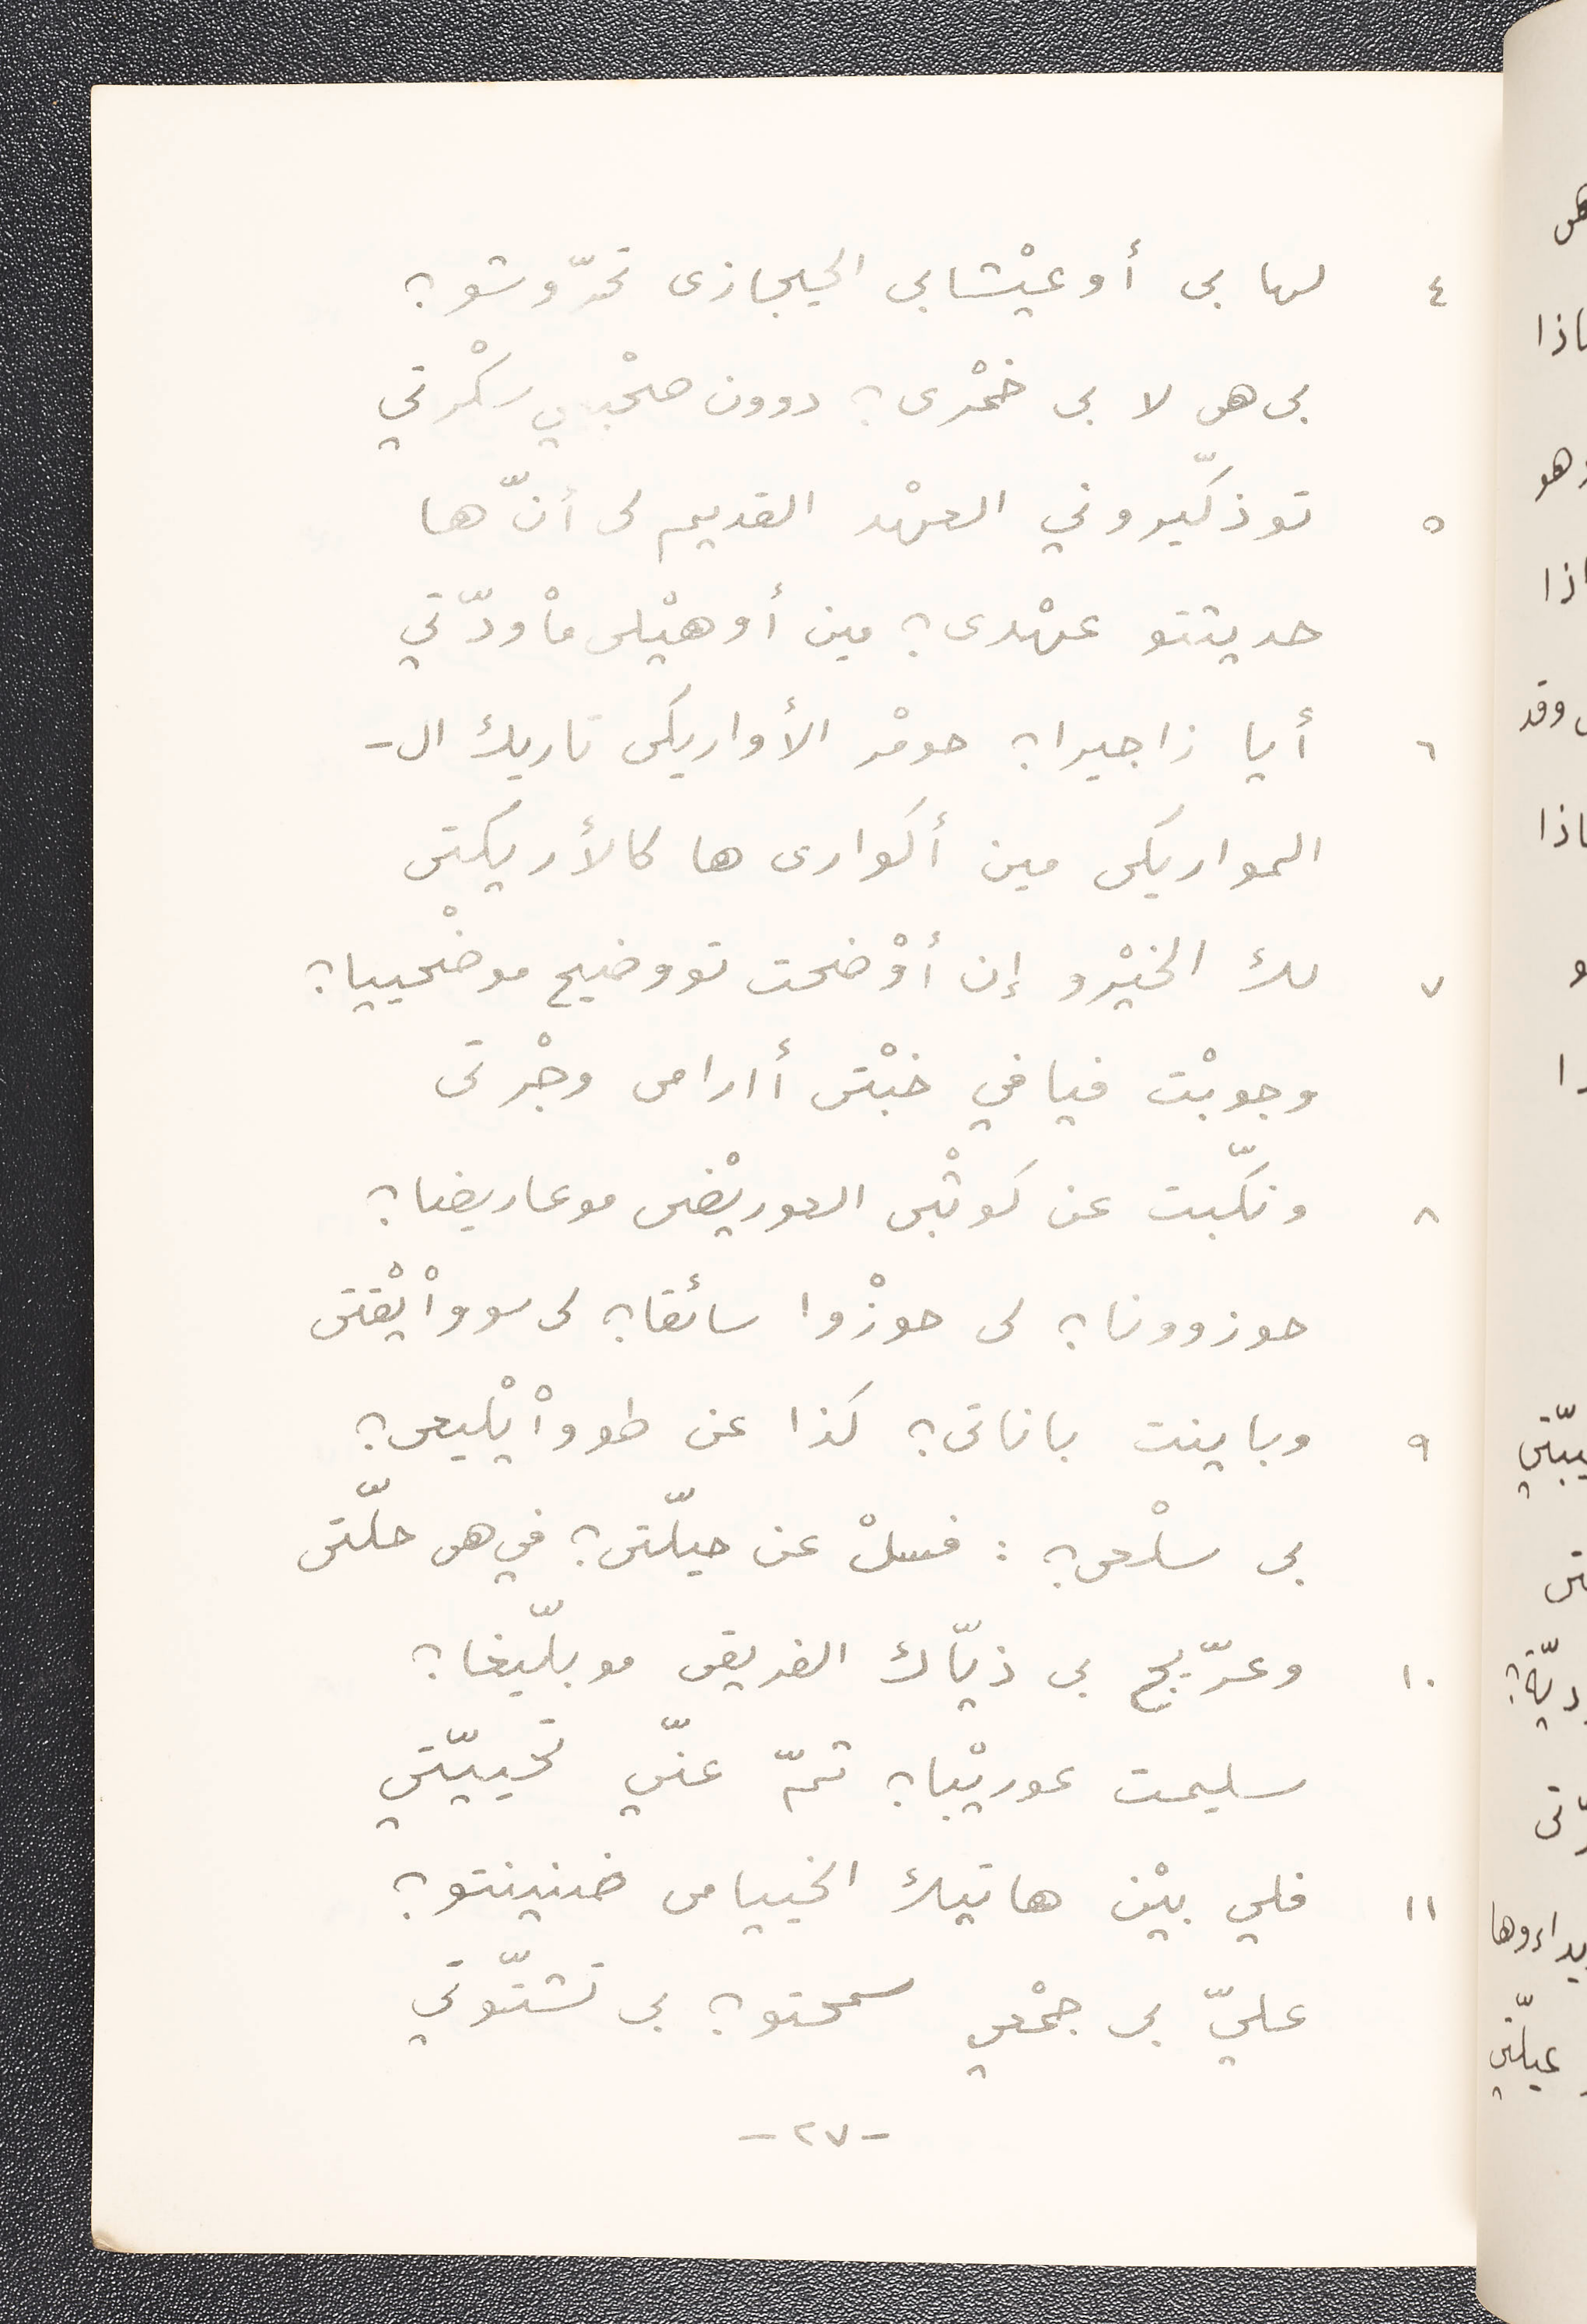 ٤ لها بى أوعيْشابى الحيجازى تحرّوشو؟
بى هى لا بى خمْرى؟ دوون صحْبي سكْرتي
٥ توذكّيروني العهْد القديم لى أنّها
حديثتو عهْدى؟ مين أوهيْلى مأودّتي
٦ أيا زاجيرا؟ حومْر الأواريكى تاريك ال-
الموارىكى مين أكوارى ها كالأريكتى
٧ لك الخيْرو إن أوْضحت تووضيح موضْحييا؟
وجوبْت فيافي خبْتى أارامى وجْرتى
٨ ونكّبت عن كوثْبى العوريْضى موعاريضا؟
حوزوونا؟ لى حوزْوا سائقا؟ لى سووأيْقتى
٩ وباينت باناتى؟ كذا عن طووأيْليعى؟
بى سلْعى؟ : فسلْ عن حيلّتى؟ في هى حلّتى
١٠ وعرّيج بى ذيّاك الفريقى موبلّيغا؟
سليمت عوريْبا؟ ثمّ عنّي تحييّتي
١١ فلي بيْن هاتيك الخييامى ضنينتو؟
عليّ بى جمْعي سمحتو؟ بى تشتّوتي
-٢٧-